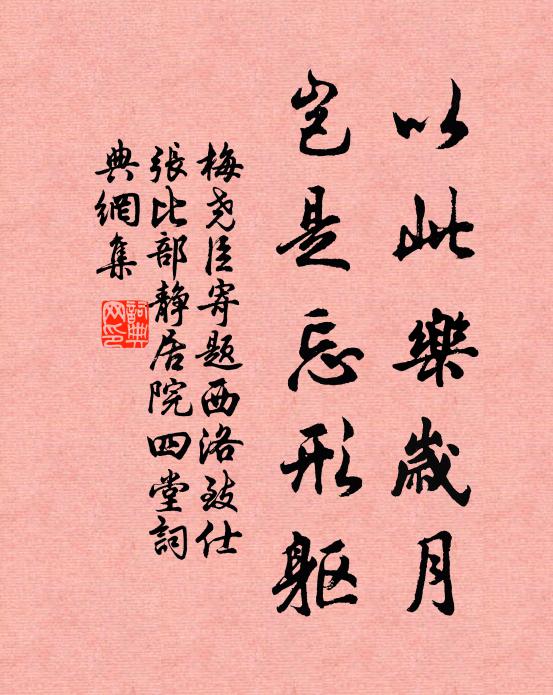 以此樂歲月
豈是忘形軀
梅堯臣寄題西洛致仕
張比部靜居院四堂詞
典網集
詞典網印